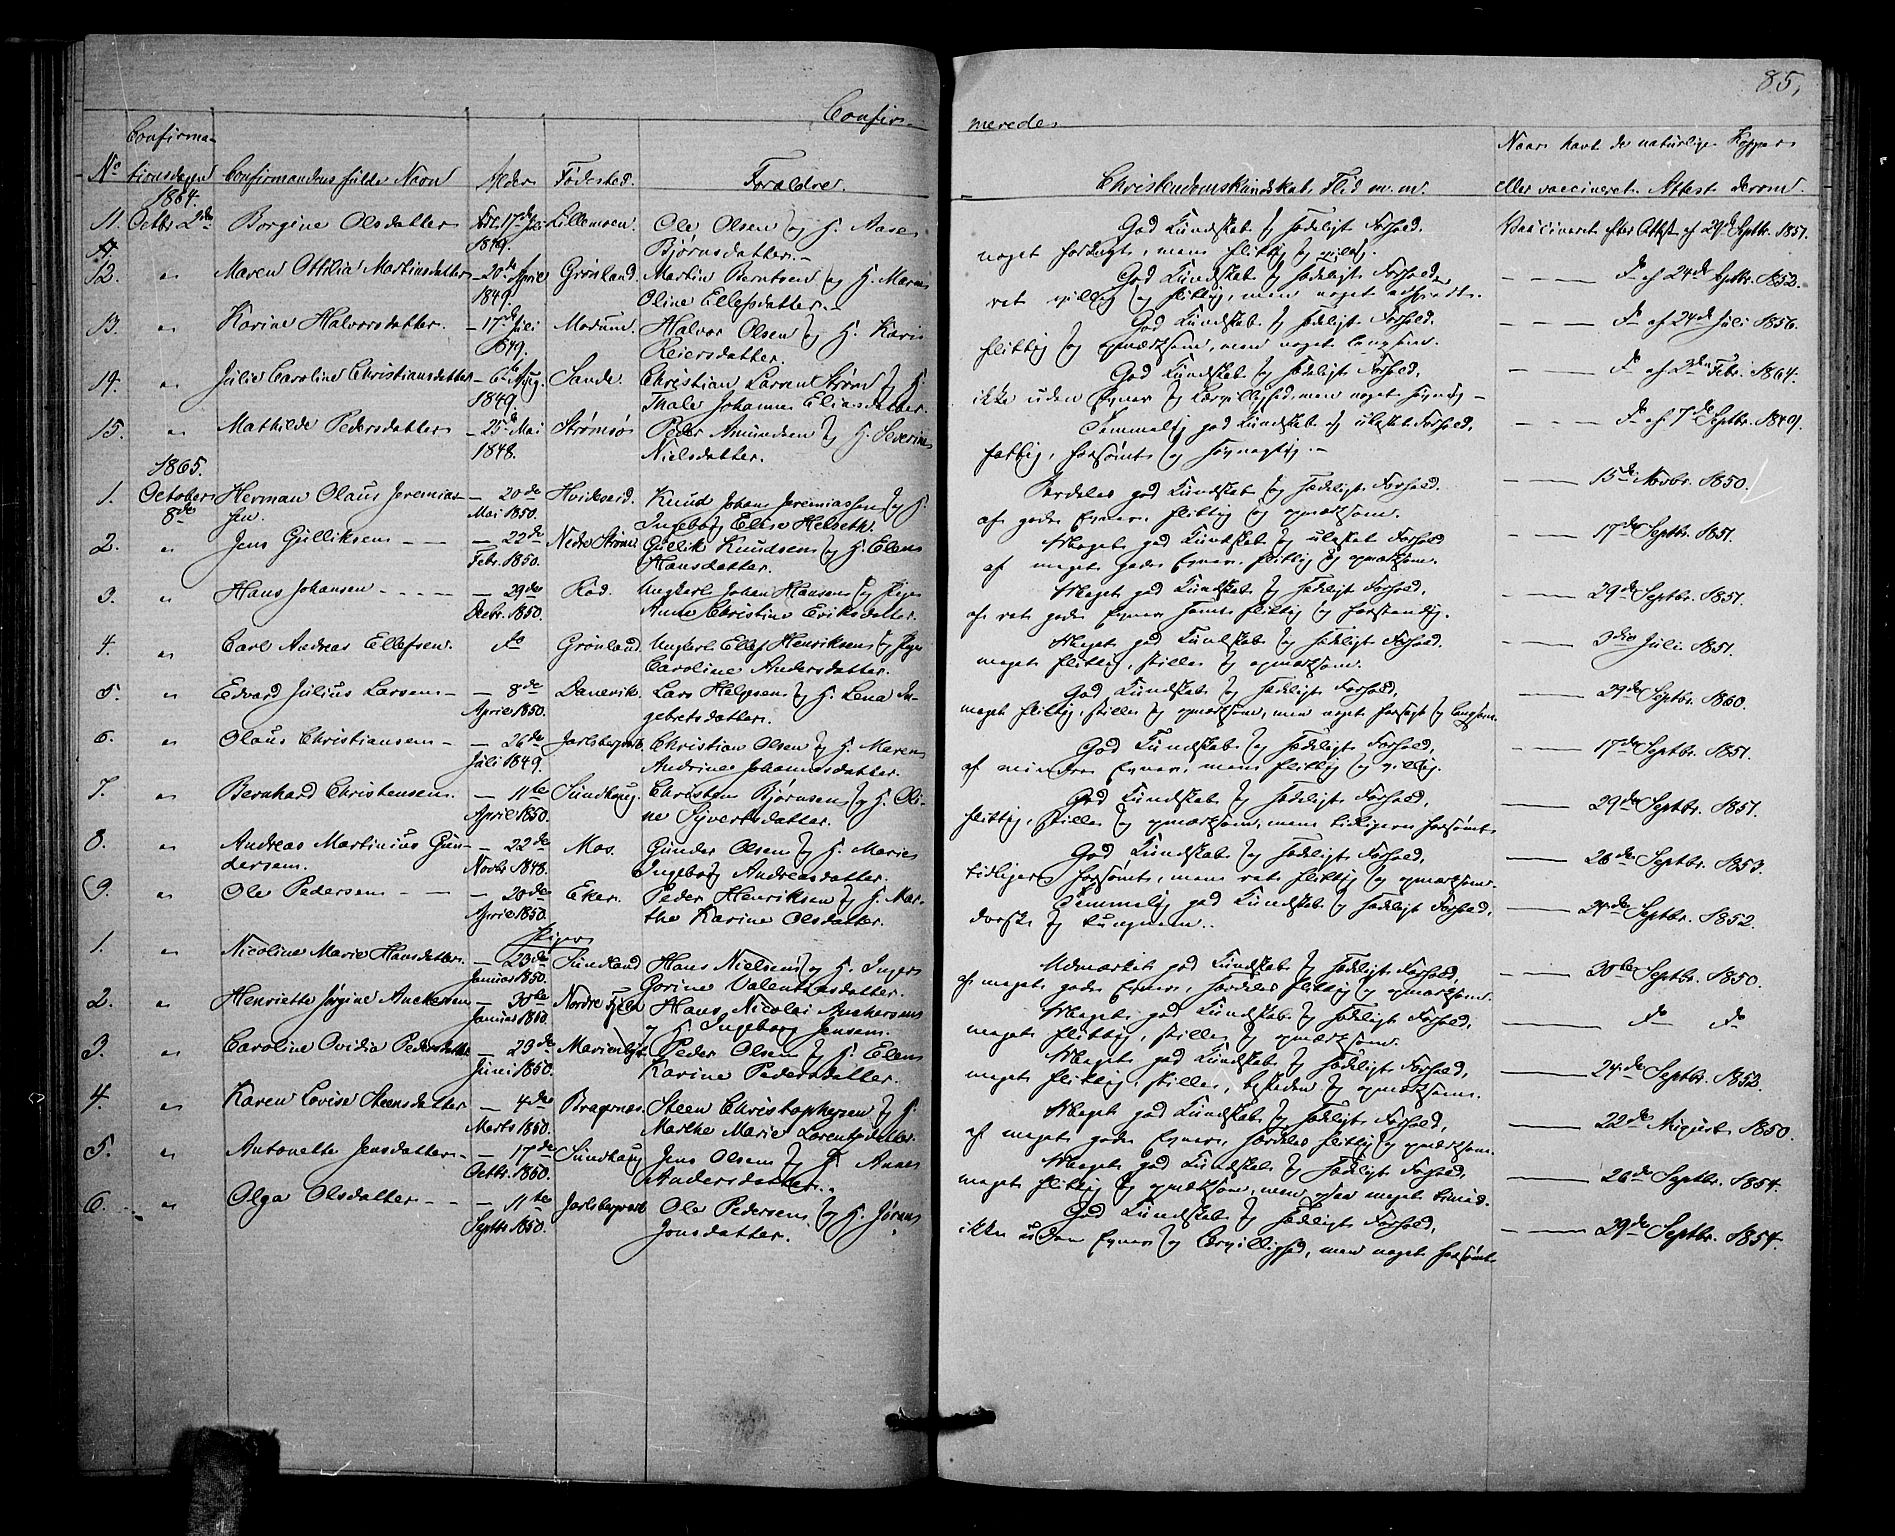 85.
Confir-
merede.
Confirma-
No tionsdagen Confirmandens fulde Navn Alder Fødested. Forældre. Christendomskundskab, Flid m. m. Naar havt de naturlige Kopper
eller vaccineret. Attest derom
1864.
11. Octbr 2den Borgine Olsdatter 17de Juli Lillemoen. Ole Olsen og H. Aase God Kundskab og sædeligt Forhold. Vaccineret efter Attest af 29de Septbr. 1851.
1849. Bjørnsdatter. noget forsagt, men flittig og villig.
12. " Maren Ottilia Martinsdatter 20de April Grønland. Martin Berntsen og H. Maren God Kundskab og sædeligt Forhold, do af 24de Septbr. 1852.
1849. Oline Ellefsdatter. ret villig og flittig, men noget adspredt.
13. " Karine Halvorsdatter. 17de Juli Modum. Halvor Olsen og H. Karis God Kundskab og sædeligt Forhold. do af 24de Juli 1856.
1849. Reiersdatter. flittig og opmærksom, men noget langsom.
14. " Julie Caroline Christiansdatter 6te Aug. Sande. Christian Larsen Strøm og H. God Kundskab og sædeligt Forhold, do af 2den Febr. 1864.
1849. Thale Johanne Eliasdatter. ikke uden Evner og Lærvillighed, men noget
15. " Mathilde Pedersdatter 25de Mai Strømsø Peder Amundsen og H. Severine Temmelig god Kundskab og ulastet Forhold, do af 7de Septbr. 1849.
1848. Nielsdatter. fattig, forsømt og
1865.
1. October Herman Olaus Jeremias- 20de Hvideseid. Knud Johan Jeremiassen og H. Særdeles god Kundskab og sædeligt Forhold. 15de Novbr. 1850.
8de sen. Mai 1850. Ingeborg Elise Helseth. af gode Evner, flittig og opmærksom.
2. " Jens Gulliksen 22de Nedre Strøm. Gullik Knudsen og H. Elen Meget god Kundskab og ulastet Forhold 17de Septbr. 1851.
Febr. 1850. Hansdatter. af meget gode Evner, flittig og opmærksom.
3. " Hans Johansen 29de Rød. Ungkarl Johan Hansen og Pige Meget god Kundskab og sædeligt Forhold, 29de Septbr. 1851.
Decbr. 1850. Anne Christine Eriksdatter. af ret gode Evner samt flittig og forstandig.
4. " Carl Andreas Ellefsen. do Grønland. Ungkarl Ellef Henriksen og Pige Meget god Kundskab og sædeligt Forhold, 3die Juli 1851.
Caroline Andersdatter. meget flittig, stille og opmærksom.
5. " Edvard Julius Larsen 8de Danevik. Lars Helgesen og H. Lena In- God Kundskab og sædeligt Forhold, 29de Septbr. 1850.
April 1850. gebretsdatter. meget flittig, stille og opmærksom, men noget forsagt og langsom.
6. " Olaus Christiansen 26de Jarlsbergværk Christian Olsen og H. Maren God Kundskab og sædeligt Forhold, 17de Septbr. 1851.
Juli 1849. Andrine Johannesdatter. af mindre Evner, men flittig og villig.
7. " Bernhard Christensen. 11te Sundhaug. Christen Bjørnsen og H. Oli- God Kundskab og sædeligt Forhold, 29de Septbr. 1851.
April 1850. ne Sjvertsdatter. flittig, stille og opmærksom, men tidligere forsømt
8. " Andreas Martinius Gun- 22de Mos. Gunder Olsen og H. Marie God Kundskab og sædeligt Forhold, 26de Septbr. 1853.
dersen. Novbr 1848. Ingeborg Andreasdatter. tidligere forsømt, men ret flittig og opmærksom.
9. " Ole Pedersen 20de Eker. Peder Henriksen og H. Mar- Temmelig god Kundskab og sædeligt Forhold, 24de Septbr. 1852.
April 1850. the Karine Olsdatter. dorsk og tungnem.
Piger
1. " Nicoline Marie Hansdatter. 23de Sundland Hans Nielsen og H. Inger Udmærket god Kundskab og sædeligt Forhold, 30te Septbr. 1850.
Januar 1850. Gorine Valentinsdatter. af meget gode Evner, særdeles flittig og opmærksom.
2. " Henriette Jørgine Anckersen 30te Nordre Fjeld Hans Nicolai Anckersen Meget god Kundskab og sædeligt Forhold, do do
Januar 1850. og H. Ingeborg Jensen. meget flittig, stille og opmærksom.
3. " Caroline Ovidia Pedersdatter 23de Marienlyst Peder Olsen og H. Elen Meget god Kundskab og sædeligt Forhold, 24de Septbr. 1852.
Juni 1850. Karine Pedersdatter. meget flittig, stille, beskeden og opmærksom.
4. " Karen Lovise Steensdatter 4de Bragernæs Steen Christophersen og H. Meget god Kundskab og sædeligt Forhold, 22de August 1850.
Marts 1850. Marthe Marie Lorentzdatter. af meget gode Evner, særdeles flittig og opmærksom.
5. " Antonette Jensdatter 17de Sundhaug Jens Olsen og H. Anne Meget god Kundskab og sædeligt Forhold, 26de Septbr. 1854.
Octbr. 1850. Andersdatter. meget flittig og opmærksom, men ogsaa meget timid.
6. " Olga Olsdatter 11te Jarlsbergværk Ole Pedersen og H. Jøran God Kundskab og sædeligt Forhold, 29de Septbr. 1854.
Septbr 1850. Jonsdatter. ikke uden Evner og Lærvillighed, men noget forsømt